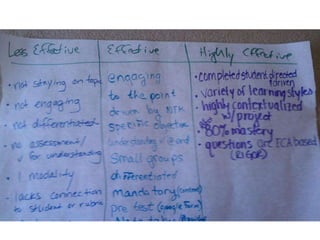 Less Effective
• not staying on topic
• not engaging
• not differentiated
• no assessment/
√ for understanding
• 1 modality
• lacks connection
to student or rubric
Effective
engaging
to the point
driven by NTK
specific objective
understanding √ @ end
Small groups
differentiated
mandatory (content)
pre test (google form)
Highly Effective
• completed student directed
driven
• variety of learning styles
• highly contextualized
w/ project
• 80% mastery
• questions are ECA based